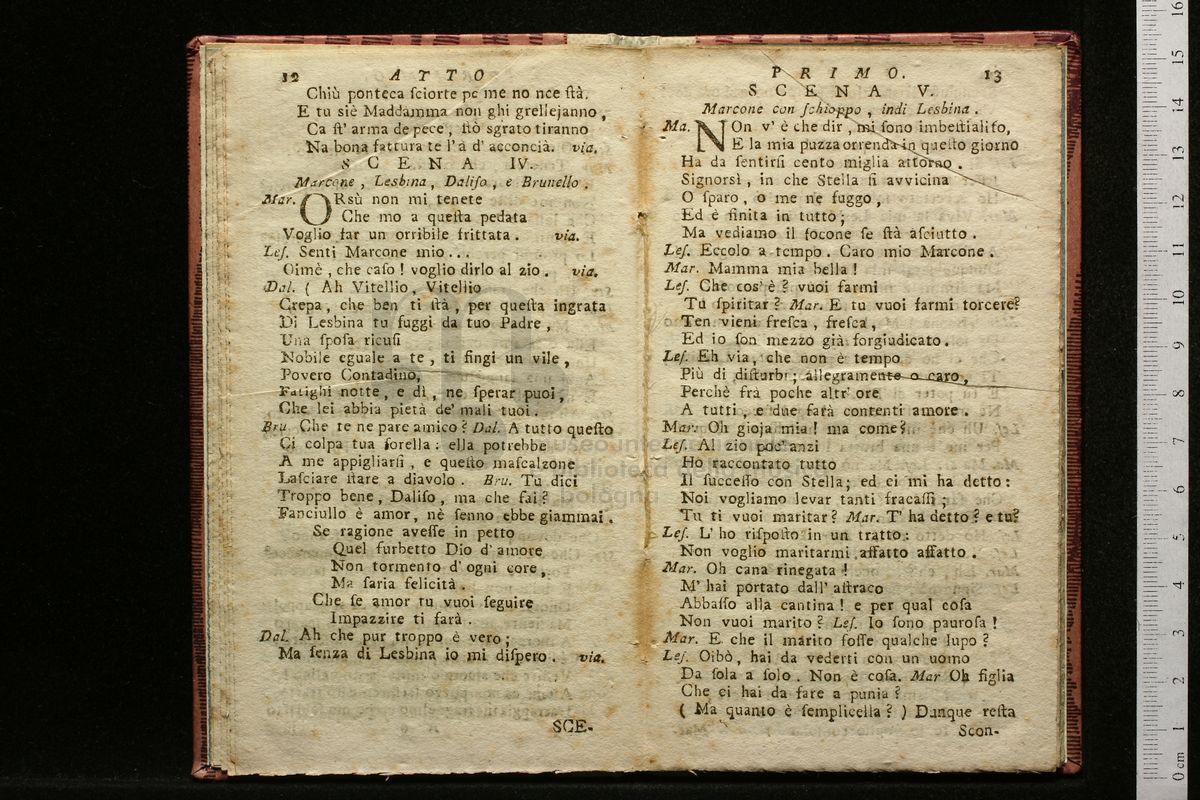 12 ATTO
Chiù ponteca ſciorte pe me no nce ſtà.
E tu siè Maddamma non ghi grellejanno,
Ca ſt' arma de pece, ſtò sgrato tiranno
Na bona fattura te l' à d' acconcià. via.
SCENA IV.
Marcone, Lesbina, Daliſo, e Brunello.
Mar. ORsù non mi tenete
Che mo a queſta pedata
Voglio far un orribile frittata. via.
Leſ. Senti Marcone mio...
Oimè, che caſo! voglio dirlo al zio. via.
Dal. ( Ah Vitellio, Vitellio
Crepa, che ben ti ſtà, per queſta ingrata
Di Lesbina tu fuggi da tuo Padre,
Una ſpoſa ricuſi
Nobile eguale a te, ti fingi un vile,
Povero Contadino,
Fatighi notte, e dì, ne ſperar puoi,
Che lei abbia pietà de' mali tuoi.
Bru. Che te ne pare amico? Dal. A tutto queſto
Ci colpa tua ſorella: ella potrebbe
A me appigliarſi, e queſto maſcalzone
Laſciare ſtare a diavolo. Bru. Tu dici
Troppo bene, Daliſo, ma che fai?
Fanciullo è amor, nè ſenno ebbe giammai.
Se ragione aveſſe in petto
Quel furbetto Dio d' amore
Non tormento d' ogni core,
Ma ſaria felicità.
Che ſe amor tu vuoi ſeguire
Impazzire ti farà.
Dal. Ah che pur troppo è vero;
Ma ſenza di Lesbina io mi diſpero. via.
SCE-
PRIMO. 13
SCENA V.
Marcone con ſchioppo, indi Lesbina.
Ma. NOn v' è che dir, mi ſono imbeſtialito,
E la mia puzza orrenda in queſto giorno
Ha da ſentirſi cento miglia attorno.
Signorsì, in che Stella ſi avvicina
O ſparo, o me ne fuggo,
Ed è finita in tutto;
Ma vediamo il focone ſe ſtà aſciutto.
Leſ. Eccolo a tempo. Caro mio Marcone.
Mar. Mamma mia bella!
Leſ. Che cos' è? vuoi farmi
Tu ſpiritar? Mar. E tu vuoi farmi torcere?
Ten vieni freſca, freſca,
Ed io ſon mezzo già forgiudicato.
Leſ. Eh via, che non è tempo
Più di diſturbi; allegramente o caro,
Perchè frà poche altr' ore
A tutti, e due farà contenti amore.
Mar. Oh gioja mia! ma come?
Leſ. Al zio poc' anzi
Ho raccontato tutto
Il ſucceſſo con Stella; ed ei mi ha detto:
Noi vogliamo levar tanti fracaſſi;
Tu ti vuoi maritar? Mar. T' ha detto? e tu?
Leſ. L' ho riſpoſto in un tratto:
Non voglio maritarmi affatto affatto.
Mar. Oh cana rinegata!
M' hai portato dall' aſtraco
Abbaſſo alla cantina! e per qual coſa
Non vuoi marito? Leſ. Io ſono pauroſa!
Mar. E che il marito foſſe qualche lupo?
Leſ. Oibò, hai da vederti con un uomo
Da ſola a ſolo. Non è coſa. Mar Oh figlia
Che ci hai da fare a punia?
( Ma quanto è ſemplicella? ) Dunque reſta
Scon-